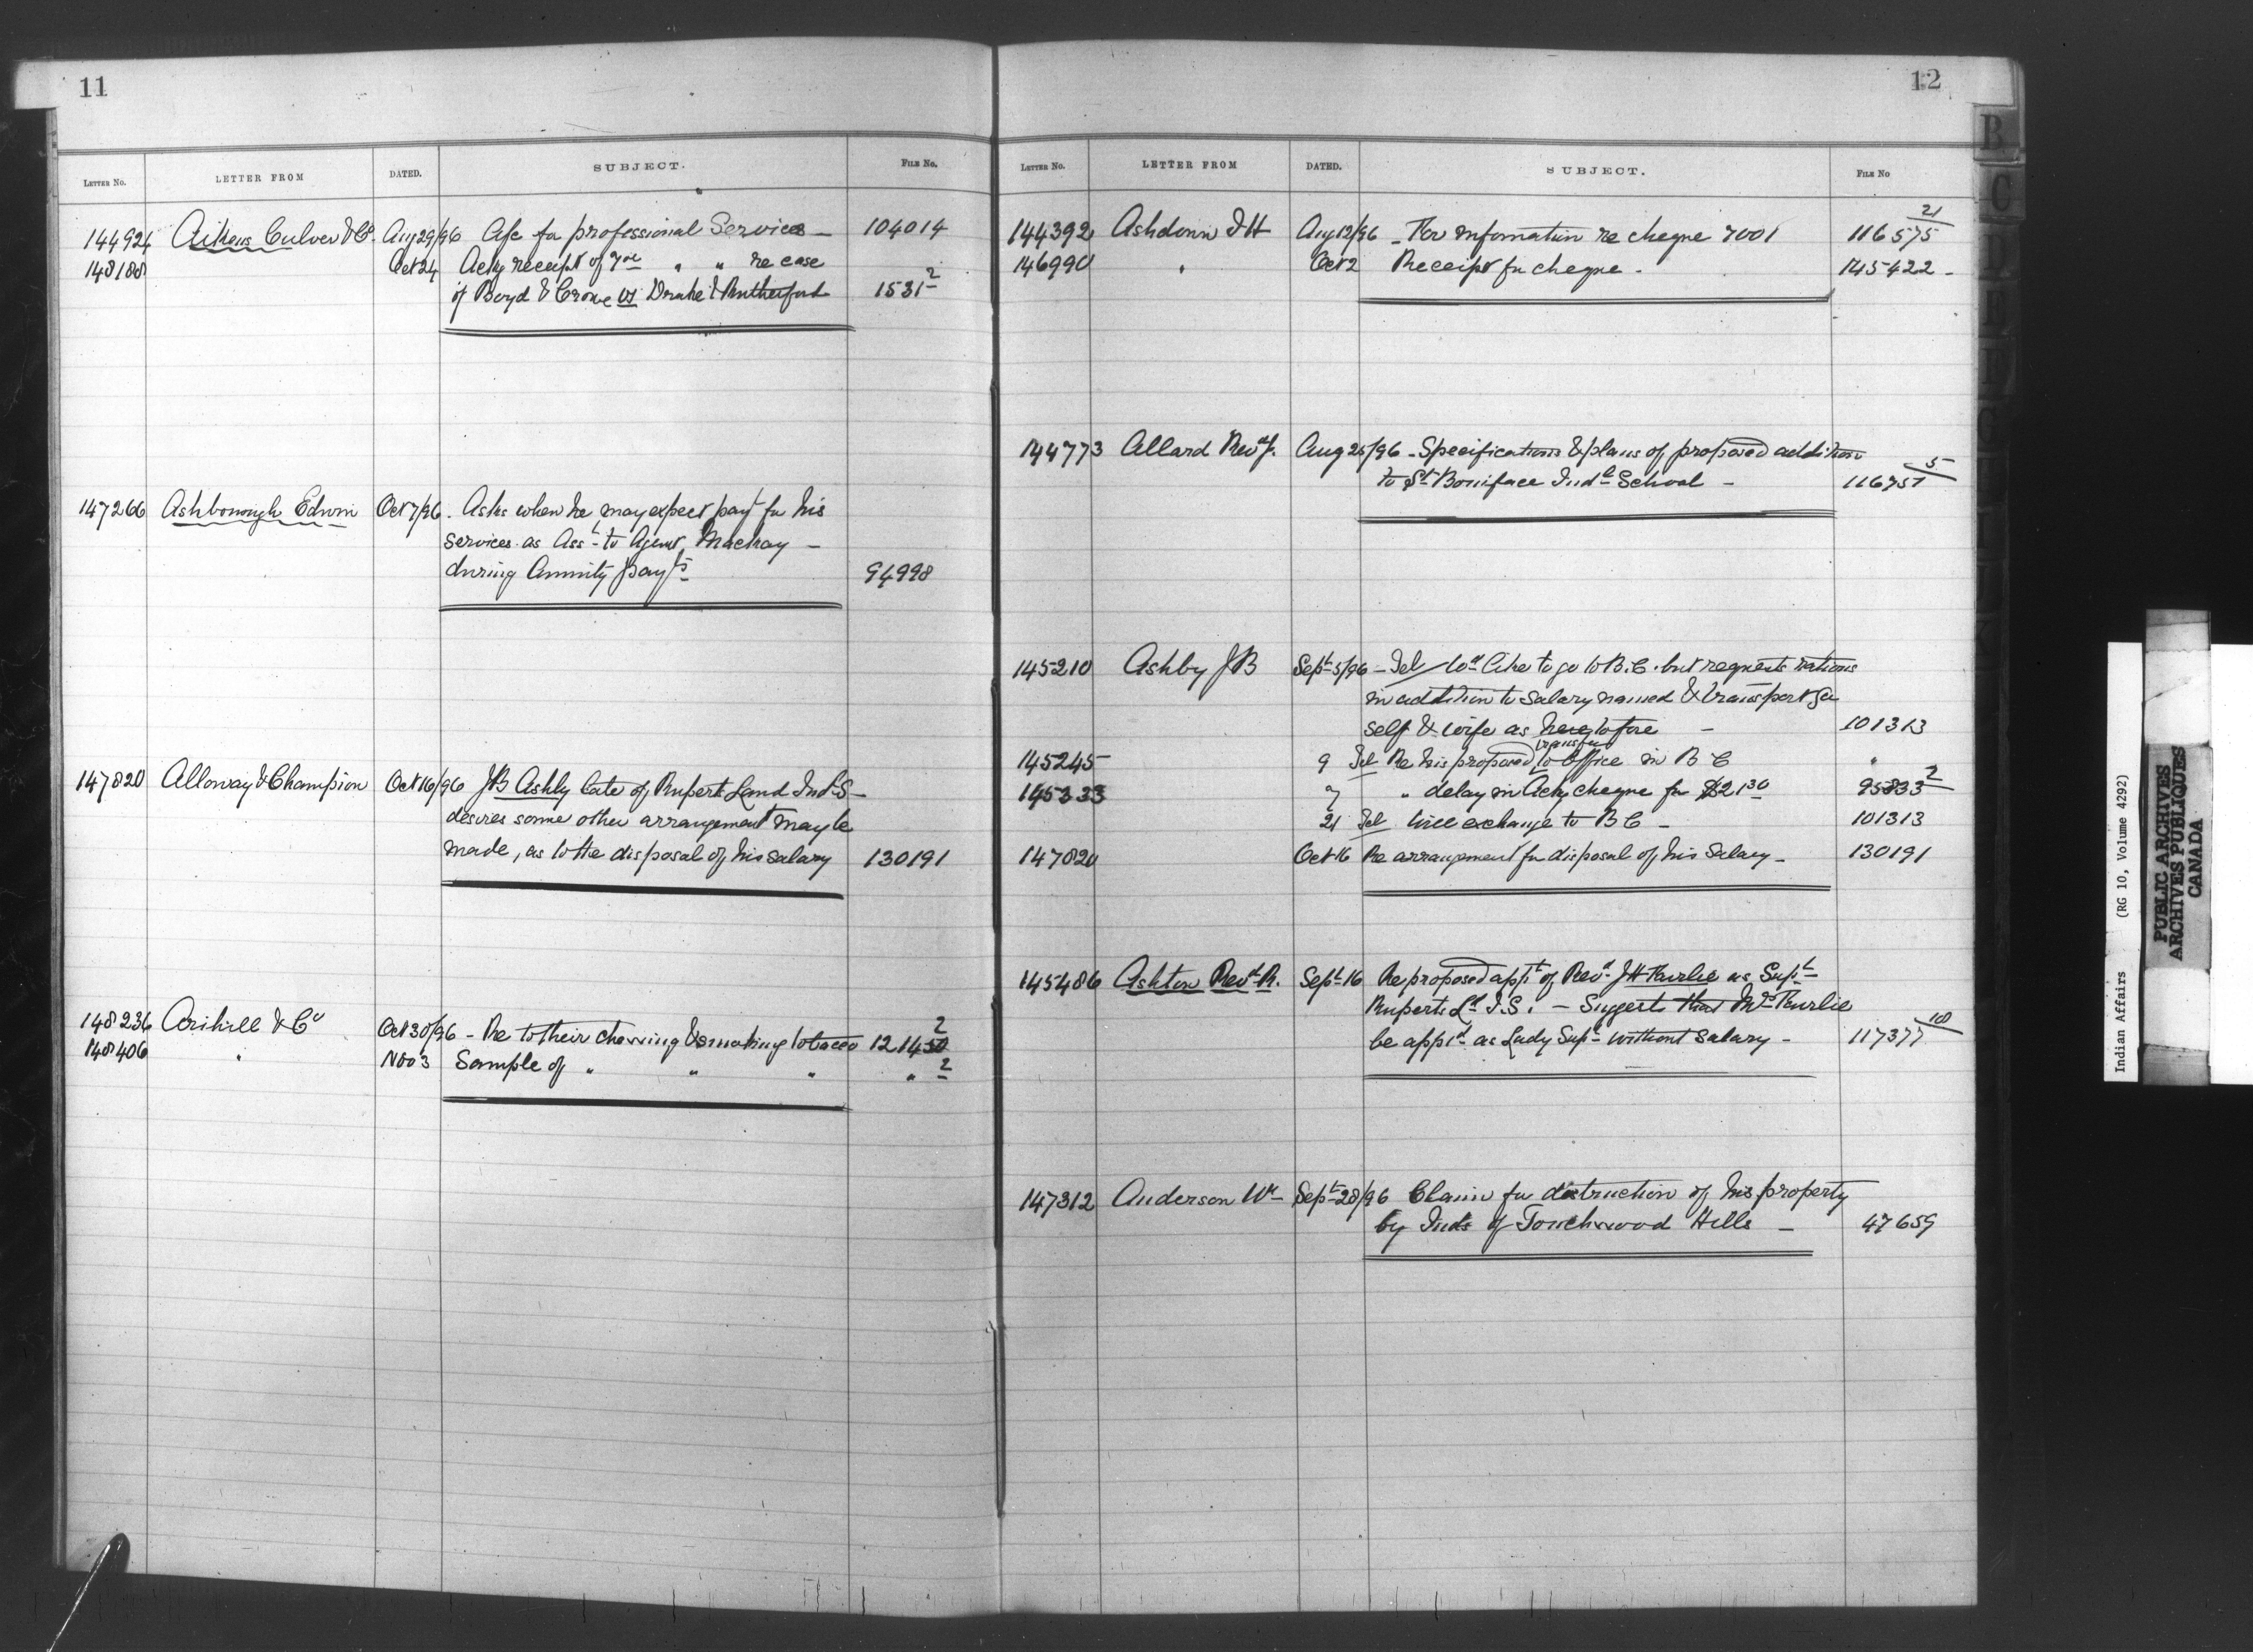 11
LETTER No. LETTER FROM DATED. SUBJECT. FILE No.
144924 Aikens Culver & Co. Aug 29/96 A/c for professional Services — 104014
148188 Oct 24 Ackg receipt of " " re case
of Boyd & Crowe vs Drake & Rutherford 1531-2
147266 Ashborough Edwin Oct 7/96. Asks when he may expect payt for his
services as Asst to Agent Mackay —
during Annuity payts 94998
147820 Alloway & Champion Oct 16/96 JB Ashby late of Rupert Land Ind S —
desires some other arrangement may be
made, as to the disposal of his salary 130191
148236 & Co Oct 30/96 — Re to their chewing & smoking tobacco 12145 2
148406 " Nov 3 Sample of " " " " 2
12
LETTER No. LETTER FROM DATED. SUBJECT. FILE No
144392 Ashdown J H Aug 12/96 — For information re cheque 7001 116575 21
146990 " Oct 2 Receipt for cheque - 145422 -
144773 Allard Revd J. Aug 25/96 — Specifications & plans of proposed addition
to St Boniface Indl School — 116751 5
145210 Ashby J B Sept 5/96 — Tel Wd like to go to B.C. but requests rations
in addition to salary named & transport for
self & wife as heretofore — 101313
145245 9 Tel Re his proposed transfer to Office in B C "
145333 7 " delay in Ackg cheque for $21 30 95833 2
21 Tel Will exchange to B C — 101313
147820 Oct 16 Re arrangement for disposal of his Salary — 130191
145486 Ashton Revd R. Sept 16 Re proposed appt of Revd J H Fairlie as Supt
Ruperts Ld I.S. — Suggests that Mrs Fairlie
be apptd as Lady Supt without salary — 117377 10
147312 Anderson Wm Sept 28/96 Claim for destruction of his property
by Inds of Touchwood Hills — 47659
B
C
Indian Affairs (RG 10, Volume 4292)
PUBLIC ARCHIVES
ARCHIVES PUBLIQUES
CANADA